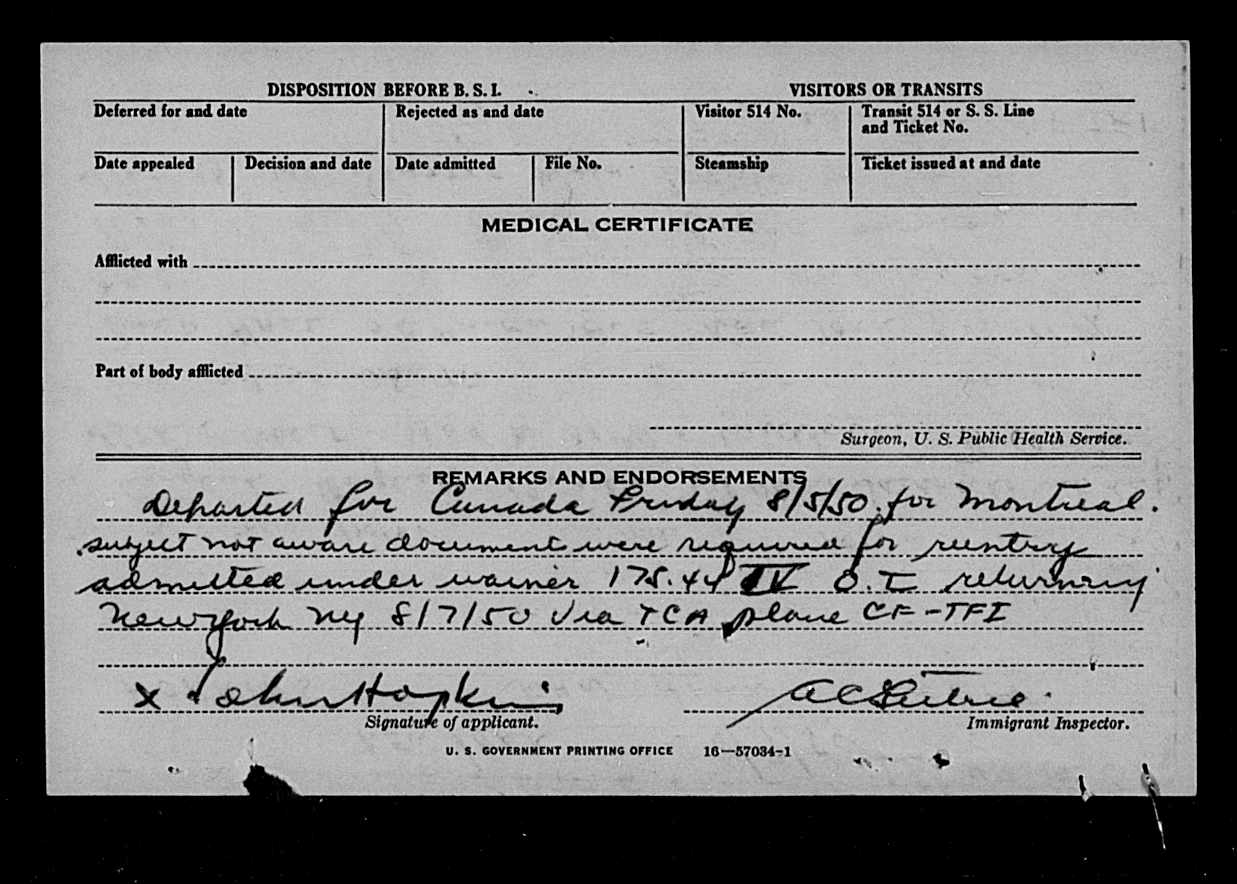 DISPOSITION BEFORE B. S. I.
VISITORS OR TRANSITS
Deferred for and date
Rejected as and date
Visitor 514 No.
Transit 514 or S. S. Line
and Ticket No.
Date appealed
Decision and date
Date admitted
File No.
Steamship
Ticket issued at and date
MEDICAL CERTIFICATE
Afflicted with
Part of body afflicted
Surgeon, U. S. Public Health Service.
REMARKS AND ENDORSEMENTS
Departed for Canada Friday 8/5/50 for Montreal.
subject not aware document were required for reentry
admitted under waiver 175.44 IV O.I returning
New York Ny 8/7/50 Via TCA plane CF-TFI
x John Hopkins
Signature of applicant.
Immigrant Inspector.
U. S. GOVERNMENT PRINTING OFFICE 16—57034-1